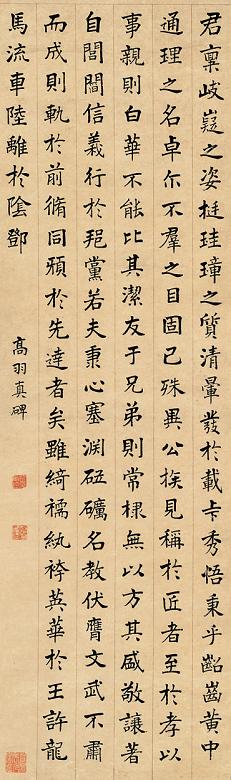 君稟岐嶷之姿挺珪璋之質清暈發於載卡秀悟秉乎齠齒黄中
通理之名卓尒不羣之目固已殊異公族見稱於匠者至於孝以
事親則白華不能比其潔友于兄弟則常棣無以方其盛敬讓著
自閨閫信義行於邦黨若夫秉心塞渊砥礪名教伏膺文武不肅
而成則軌於前脩同頻於先達者矣雖綺襦紈袴英華於王許龍
馬流車陸離於陰鄧
髙羽真碑